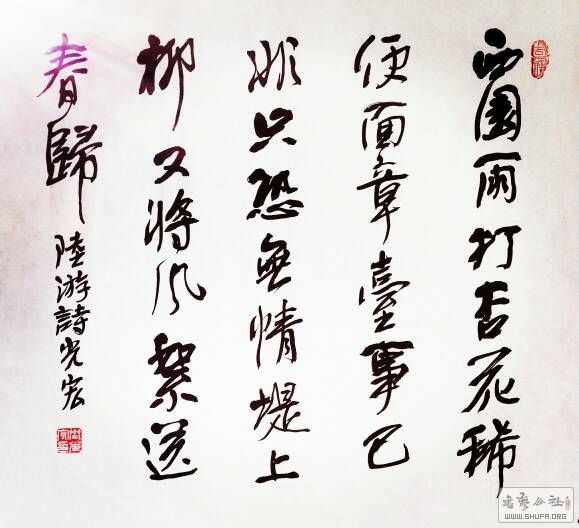 西園雨打杏花稀
便面章臺事已
非只恐無情堤上
柳又將風絮送
春歸
陸游詩光宏
书艺公社
WWW.SHUFA.ORG